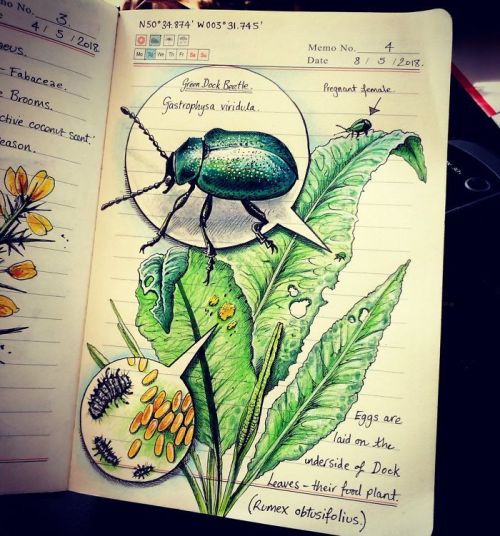 mo No. 3
4 / 5 / 2018
eus.
- Fabaceae.
e Brooms.
ctive coconut scent.'
eason.
N50°34.874' W003°31.745'
Mo Tu We Th Fr Sa Su
Memo No. 4
Date 8 / 5 / 2018.
Green Dock Beetle.
Gastrophysa viridula.
Pregnant female
Eggs are
laid on the
underside of Dock
Leaves - their food plant.
(Rumex obtusifolius.)